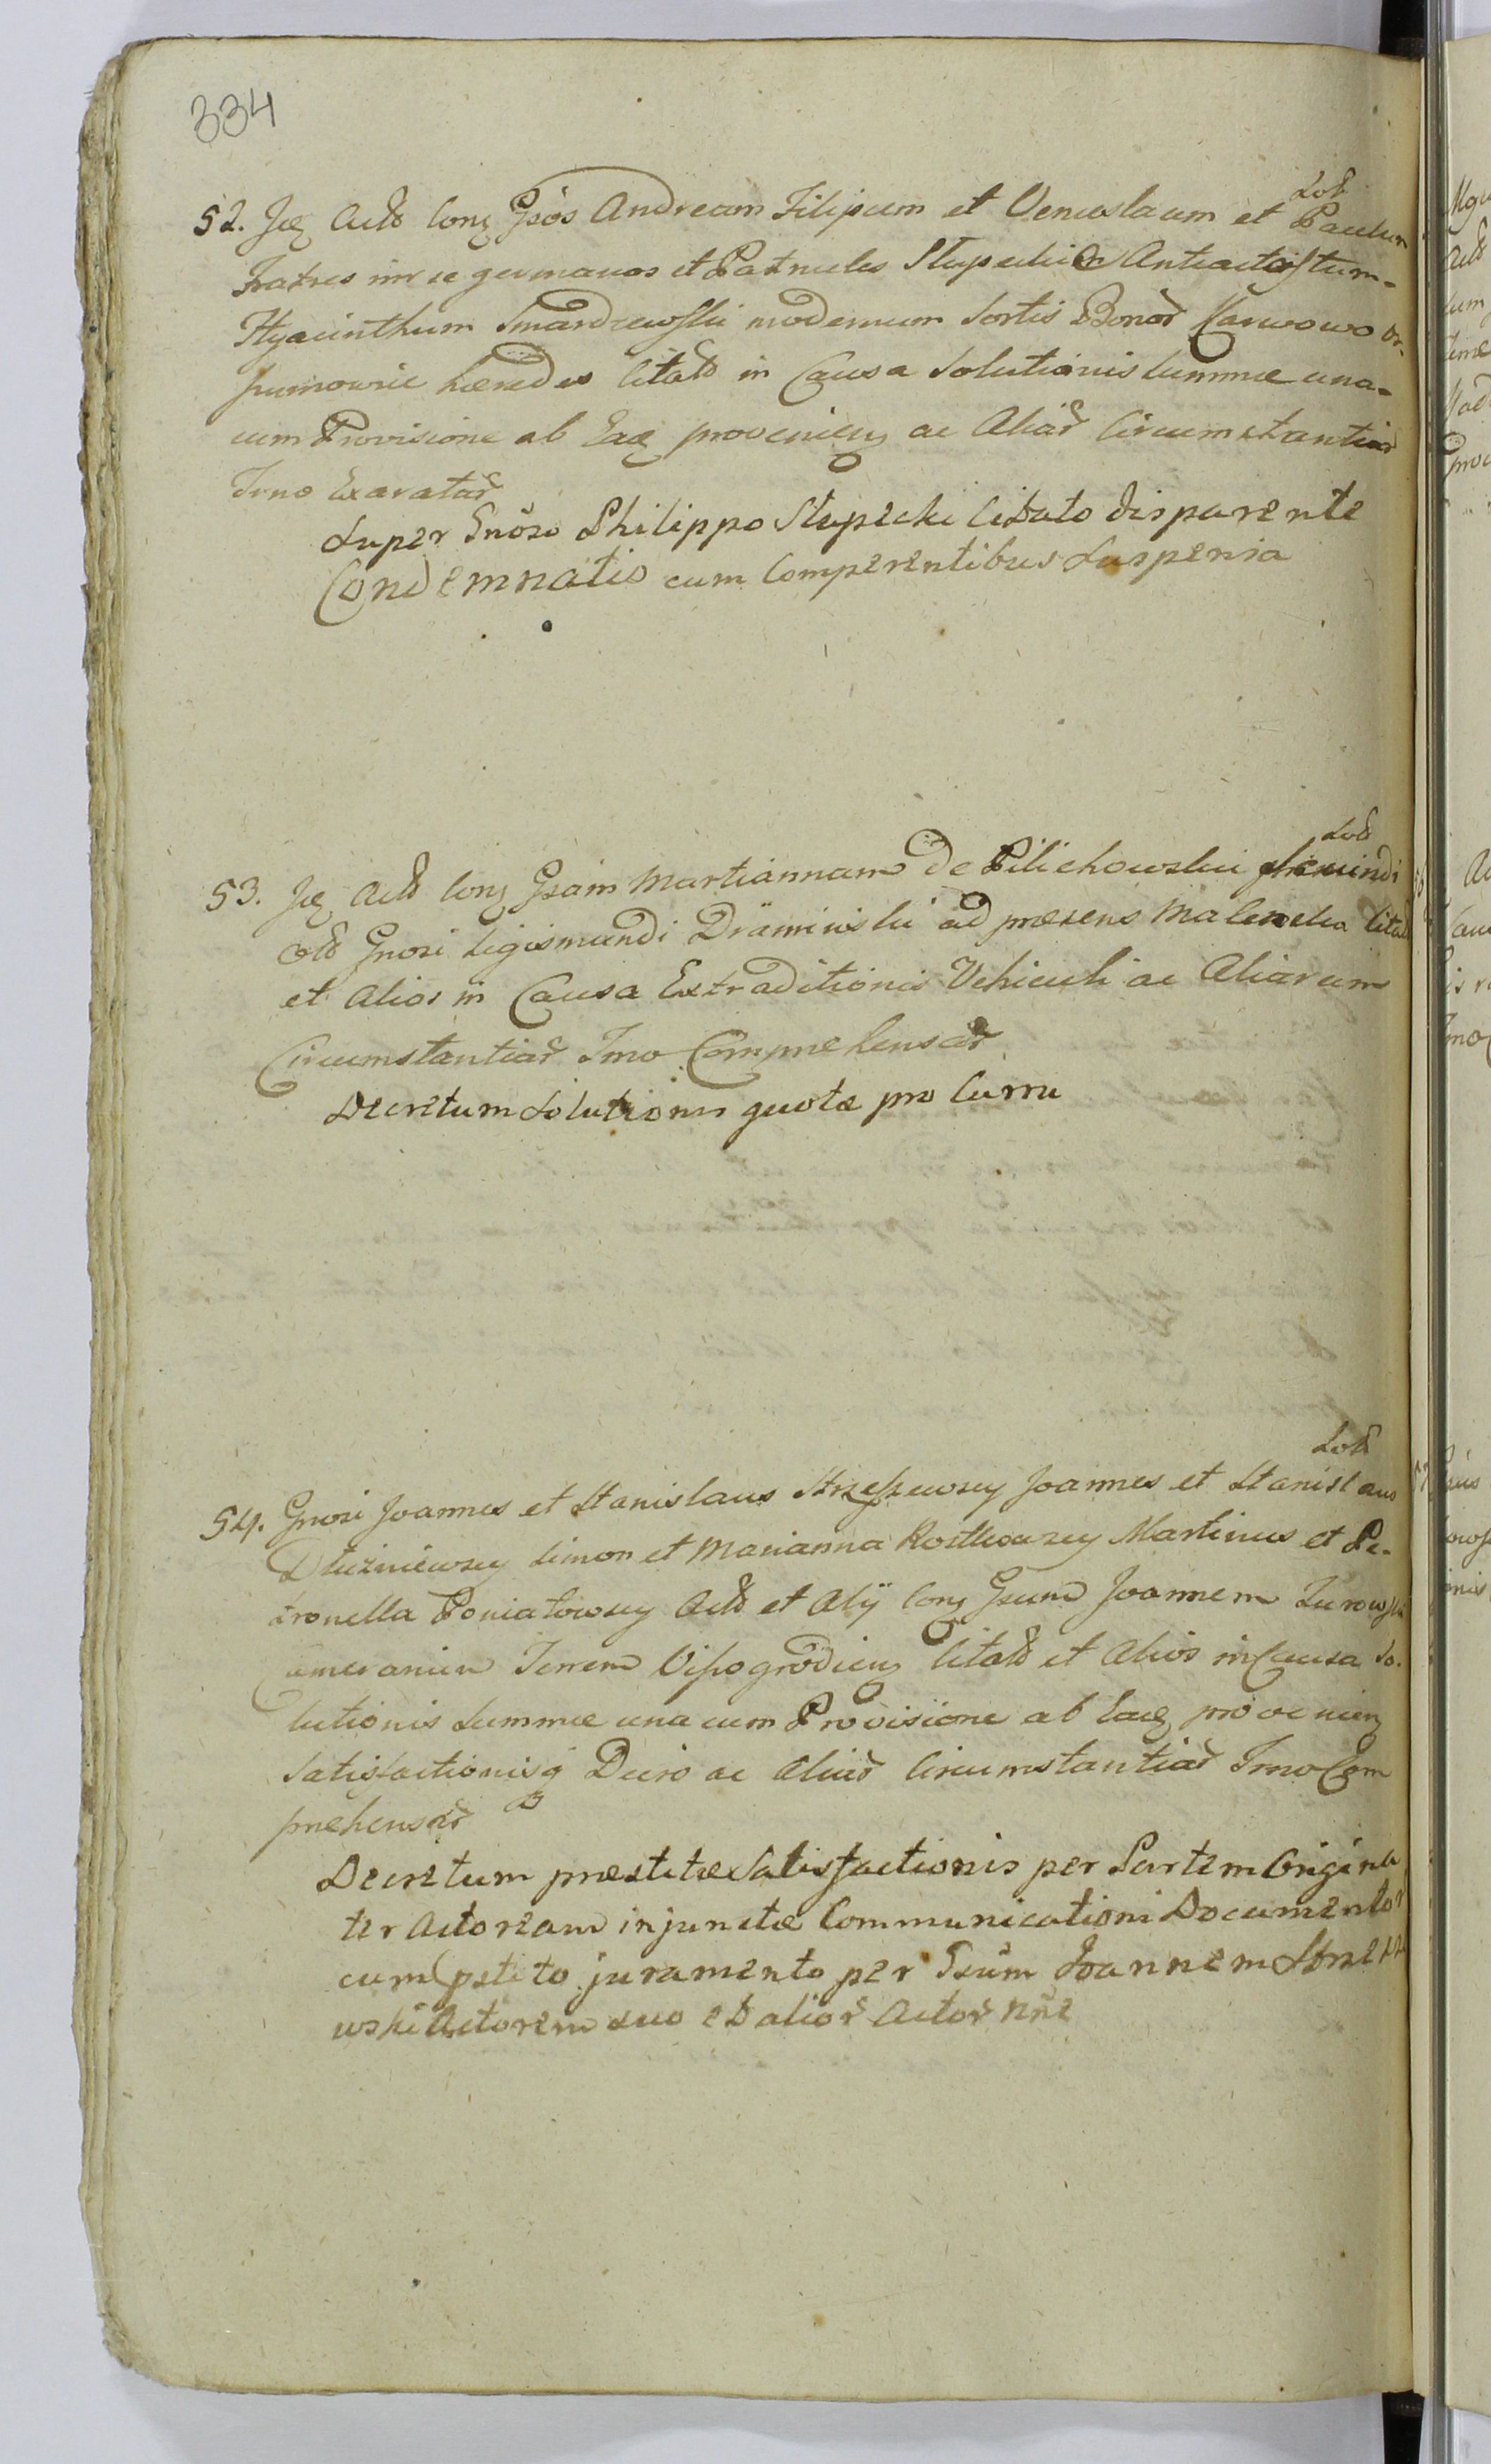 334
Sot
52. Jig Actt Cong Gsos Andream Filipum et Venceslaum et Paulum
Fratres inr se germanos et Patrueles Slupeckie Antecator tum-
Hyacinthum Smardzewski modernum Sortis Bonor Karwowo or-
szumowie hæredes Citatt in Causa Solutionis Summæ una-
cum Provisione ab Eaq proveniens ac Aliar Circumstantiar
Tmo Exaratar
Super Gnoso Philippo Slupecki Citato disparente
Condemnatio cum Comperentibus Suspensa
Sott
53. Jig Actt Cong Gsam Martiannam De Pilichowskie
ott Gnosi Sigismundi Dramiński ad præsens Malenska Citatt
et Alios in Causa Extraditionis Vehiculi ac Aliarum
Circumstantiar Tmo Comprehensar
Decretum Solutionis quotæ pro Curru
Sott
54. Gnosi Joannes et Stanislaus Strzeszewscy Joannes et Stanislaus
Dłużniewscy Simon et Marianna Rostkowscy Martinus et Pe-
tronella Poniatowscy Actt et Alij Cong Gsum Joannem Turowski
Camerarium Terrem Vissogrodieng Citatt et Alios in Causa So-
lutionis Summæ una cum Provisione ab Eaq proveniens
Satisfactionisq Decro ac Aliar Circumstantiar Tmo Com
prehensar
Decretum præstitæ Satisfactionis per Partem Origina
ter Actoream injunctæ Communicationi Documentor
cum pstito juramento per Gsum Joannem Strzesze
wski Actorem suo et alior Actor nne